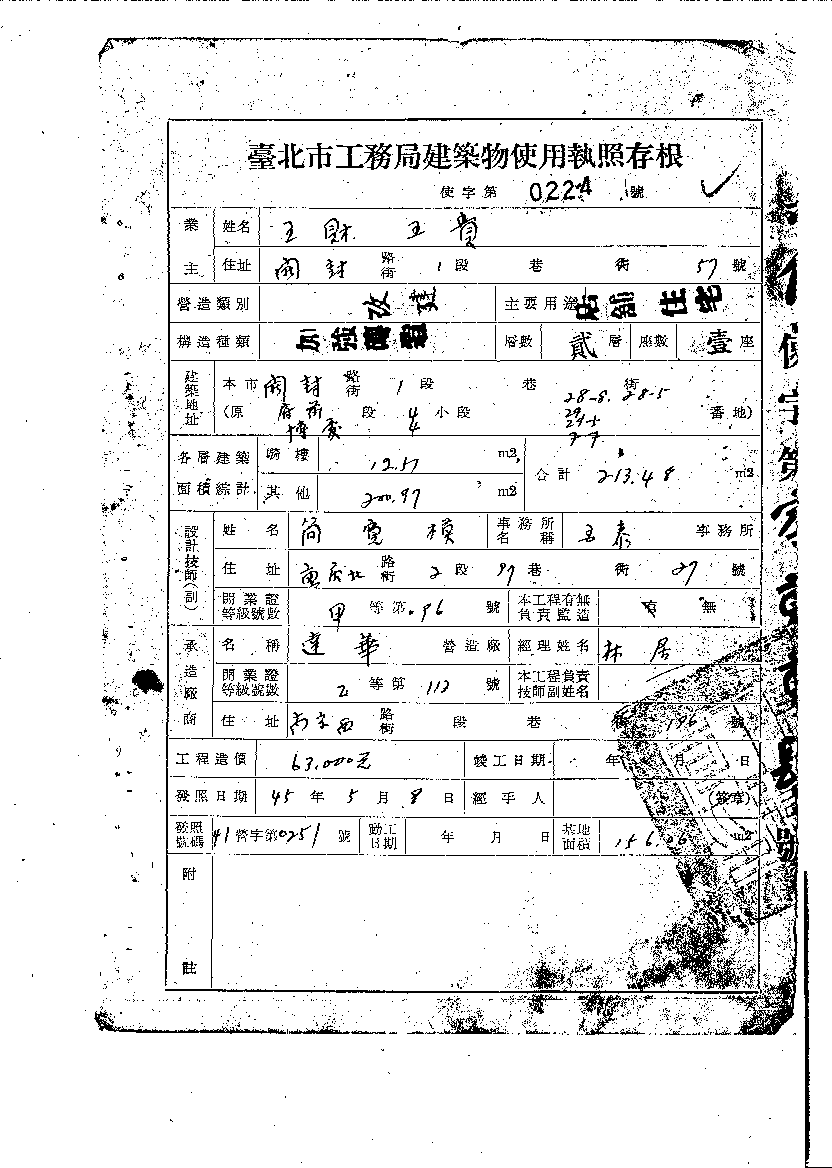 臺北市工務局建築物使用執照存根
使字第 0224 號
業主 姓名 王財 王貴
住址 開封 路街 1 段 巷 街 57 號
營造類別 改建 主要用途 店舖住宅
構造種類 加強磚造 層數 貳 層 座數 壹 座
建築地址 本市 開封 路街 1 段 巷 街
(原 府前 段 4 小段 28-8. 28-5 番地)
4 29
29-5
7-7
各層建築面積綜計 騎樓 12.57 m2 合計 213.48 m2
其他 200.97 m2
設計技師(副) 姓名 簡 模 事務所名稱 玉泰 事務所
住址 重慶北 路街 2 段 97 巷 街 27 號
開業證等級號數 甲 等第 096 號 本工程有無負責監造 有 無
承造廠商 名稱 達華 營造廠 經理姓名 林居
開業證等級號數 乙 等第 112 號 本工程負責技師副姓名
住址 南京西 路街 段 巷 街 196 號
工程造價 63,000元 竣工日期 年 月 日
發照日期 45 年 5 月 8 日 經手人 (簽章)
發照號碼 41 營字第 0251 號 動工日期 年 月 日 基地面積 156.26 m2
附註
使字第
號